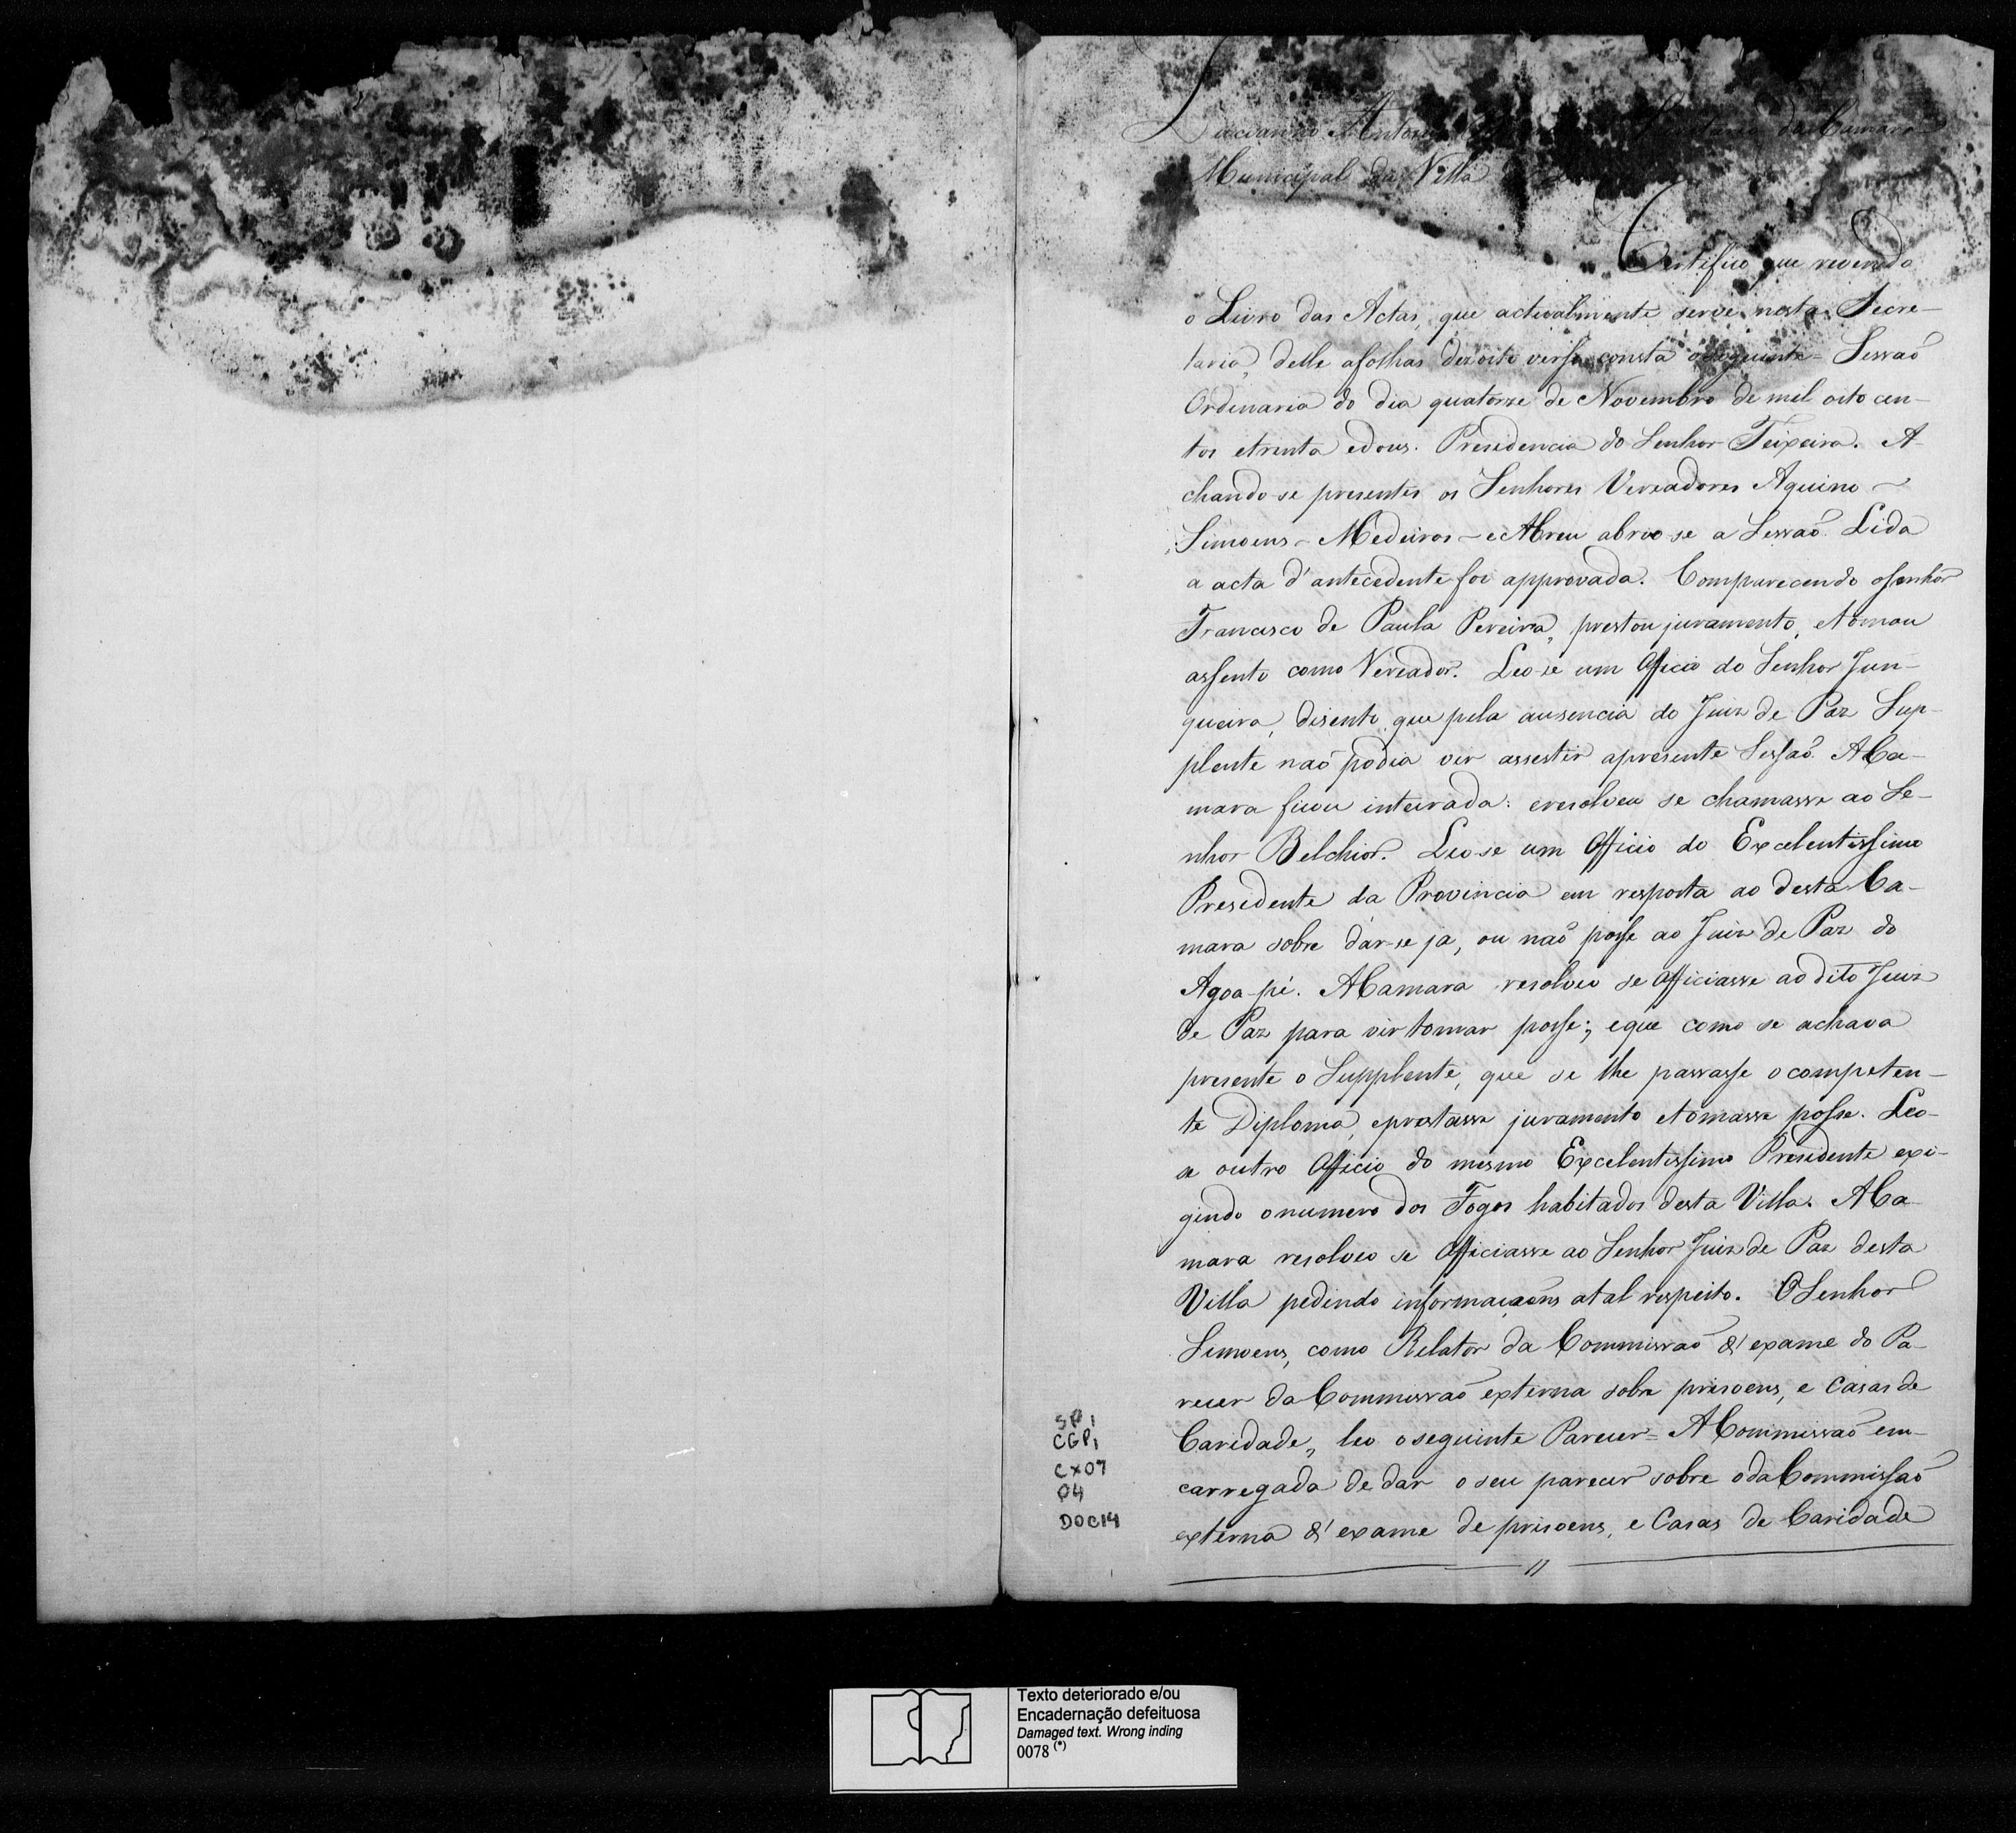 Lucianno Antonio da Camara
Municipal da Villa
Certifico que revendo
o Livro das Actas, que actualmente serve nesta Secre-
taria, delle afolhas dezoito verso consta oseguinte = Sessaõ
Ordinaria do dia quatorze de Novembro de mil oito cen-
tos etrinta edous. Presidencia do Senhor Teixeira. A-
chando-se presentes os Senhores Vereadores Aquino -
Simoens - Medeiros - e Abreu abrio-se a Sessaõ. Lida
a acta d'antecedente foi approvada. Comparecendo oSenhor
Francisco de Paula Pereira, prestou juramento, etomou
assento como Vereador. Leo-se um Officio do Senhor Jun-
queira, disento, que pela ausencia do Juiz de Paz Sup-
plente naõ podia vir assestir apresente Sessaõ. ACa-
mara ficou inteirada: eresolveu se chamasse ao Se-
nhor Belchior. Leo-se um Officio do Excelentissimo
Presidente da Provincia em resposta ao desta Ca-
mara sobre dar-se ja, ou naõ posse ao Juiz de Paz do
Agoa-pé. ACamara resolveo se Officiasse ao dito Juiz
de Paz para vir tomar posse; eque como se achava
presente o Supplente, que se lhe passasse o competen-
te Diploma, eprestasse juramento etomasse posse. Leo-
se outro Officio do mesmo Excelentissimo Presidente exi-
gindo onumero dos Fogos habitados desta Villa. ACa-
mara resolveo se Officiasse ao Senhor Juiz de Paz desta
Villa pedindo informaçaõens atal respeito. OSenhor
Simoens, como Relator da Commissaõ d'exame do Pa-
recer da Commissaõ externa sobre prisoens, e Casas de
Caridade, leo oseguinte Parecer = ACommissaõ en-
carregada de dar o seu parecer sobre oda Commissaõ
externa d'exame de prisoens, e Casas de Caridade
SP1
CGP1
CX07
P4
DOC14
Texto deteriorado e/ou
Encadernação defeituosa
Damaged text. Wrong inding
0078 (*)